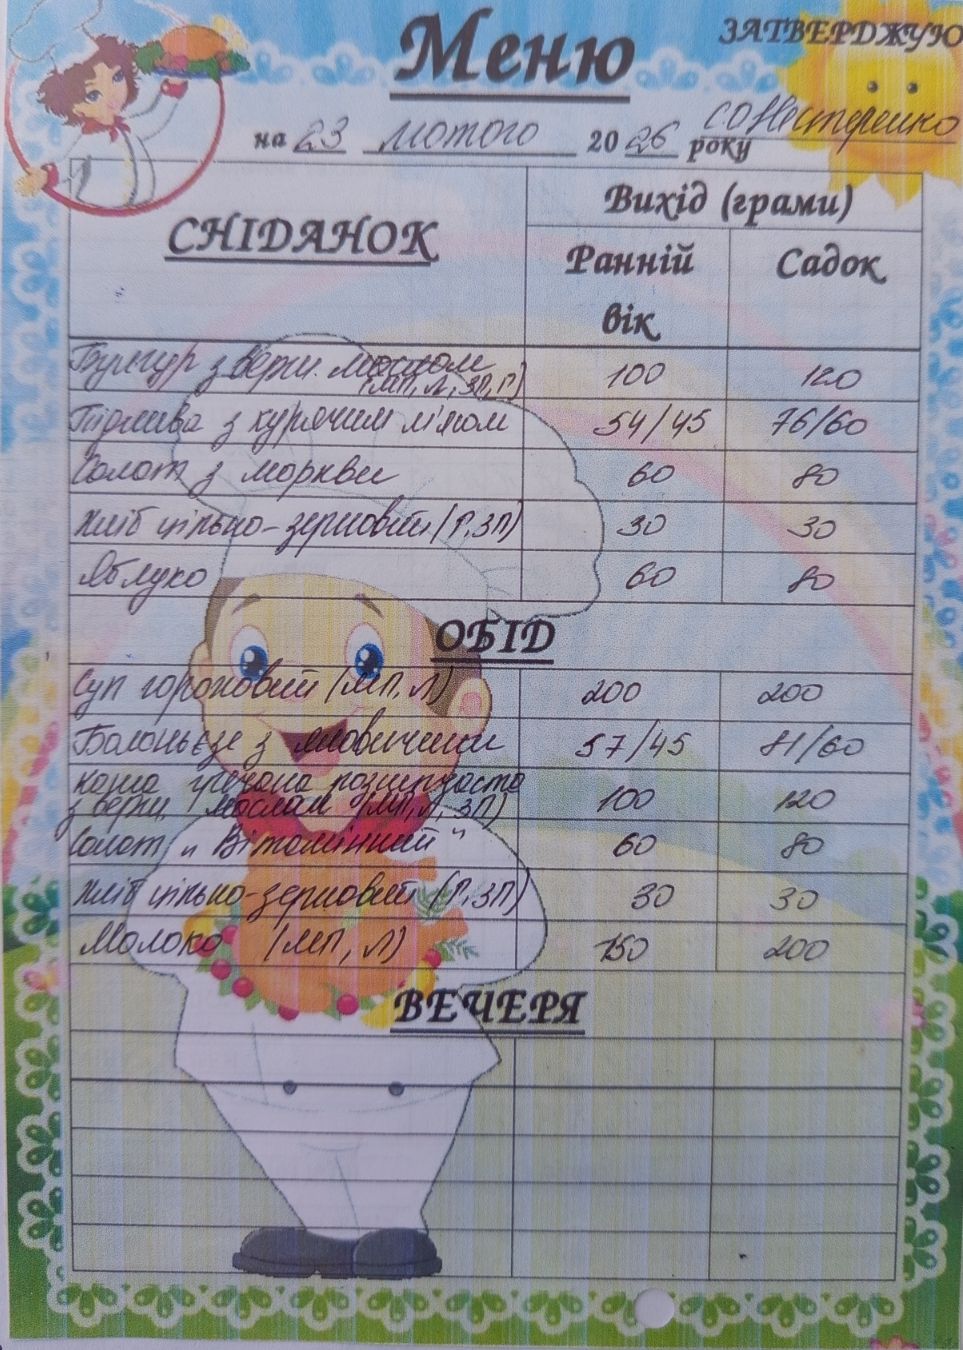 Меню
ЗАТВЕРДЖУЮ
на 23 лютого 2026 року
СНІДАНОК
Вихід (грами)
Ранній вік
Садок
Булгур з верш. маслом (МП, Л, ЗП, Г) 100 120
Підлива з курячим м'ясом 54/45 76/60
Салат з моркви 60 80
Хліб цільно-зерновий (Г, ЗП) 30 30
Яблуко 60 80
ОБІД
Суп гороховий (МП, Л) 200 200
Болоньєзе з яловичини 57/45 81/60
Каша гречана розсипчаста
з верш. маслом (МП, Л, ЗП) 100 120
Салат „Вітамінний" 60 80
Хліб цільно-зерновий (Г, ЗП) 30 30
Молоко (МП, Л) 150 200
ВЕЧЕРЯ